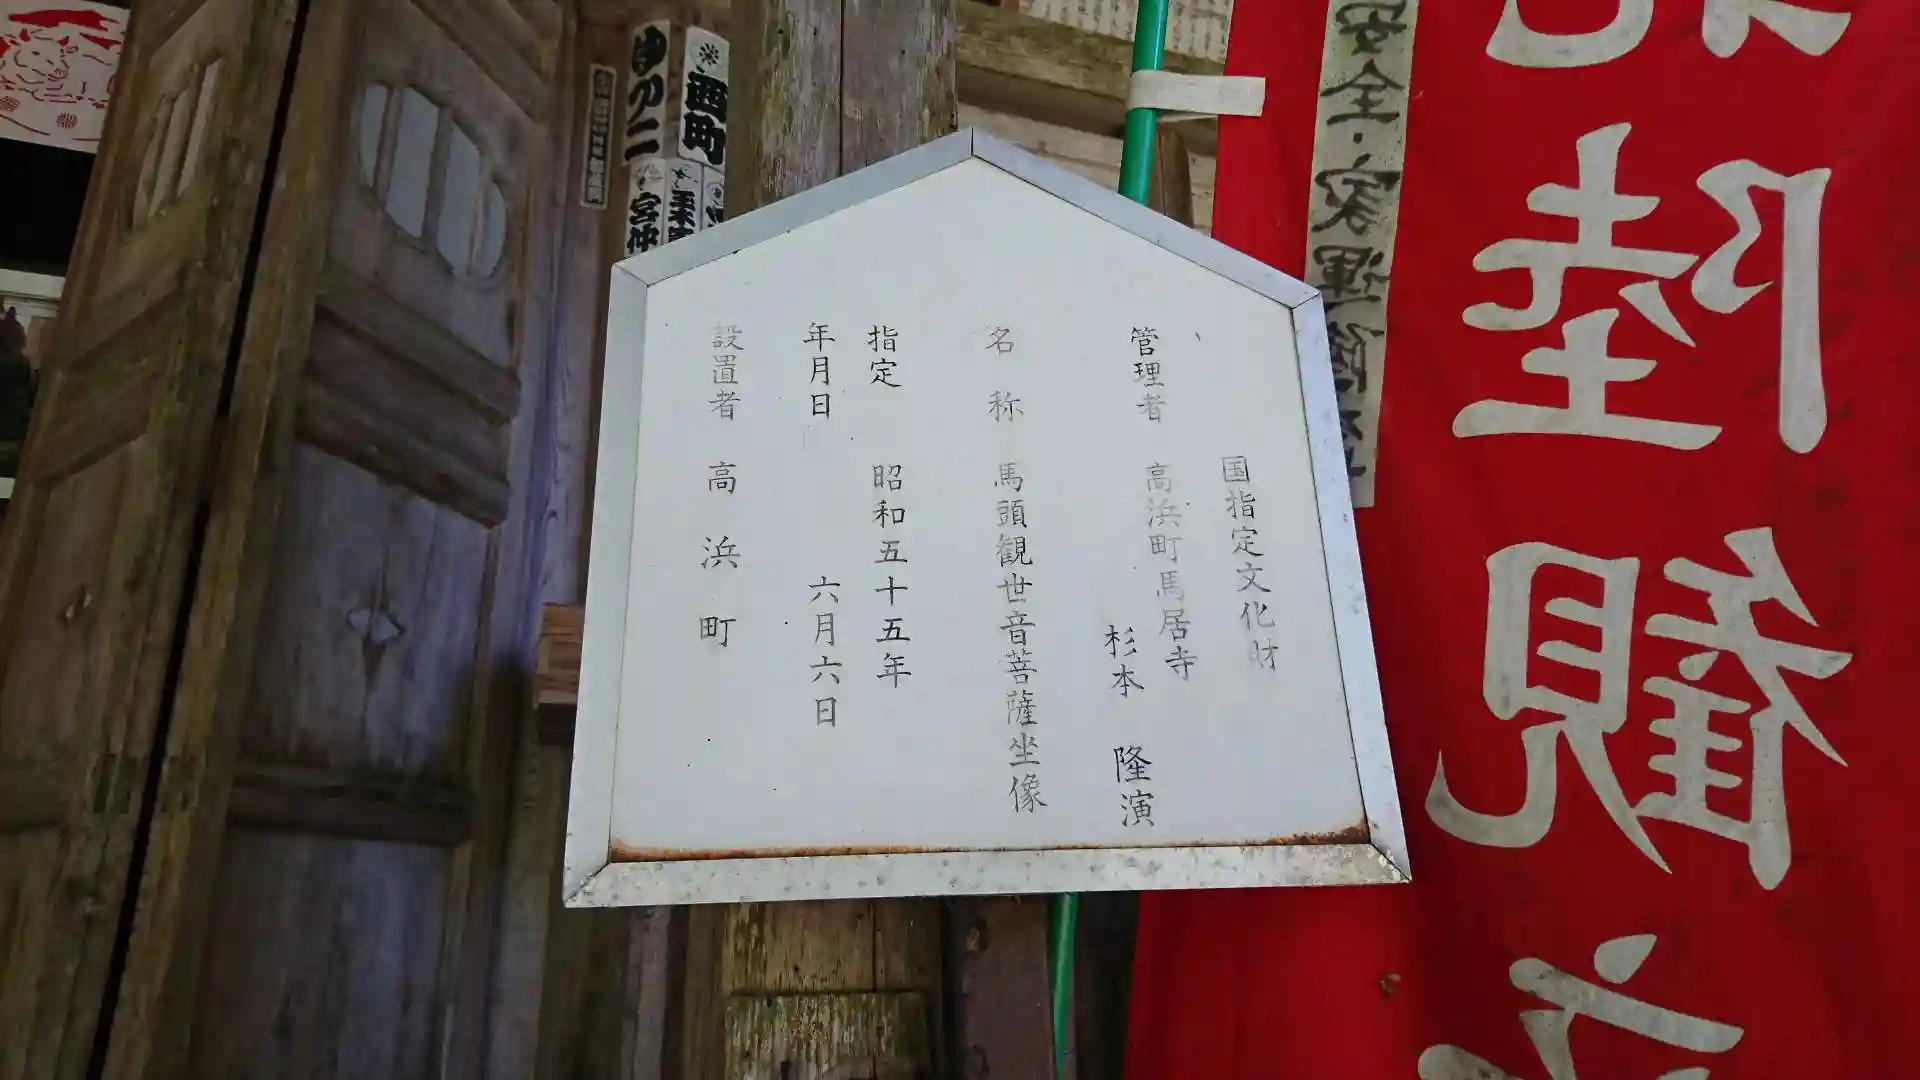 国指定文化財
管理者 高浜町馬居寺
杉本 隆演
名称 馬頭観世音菩薩坐像
指定 昭和五十五年
年月日 六月六日
設置者 高浜町
陸観
安全・家運隆
西町
宮仲